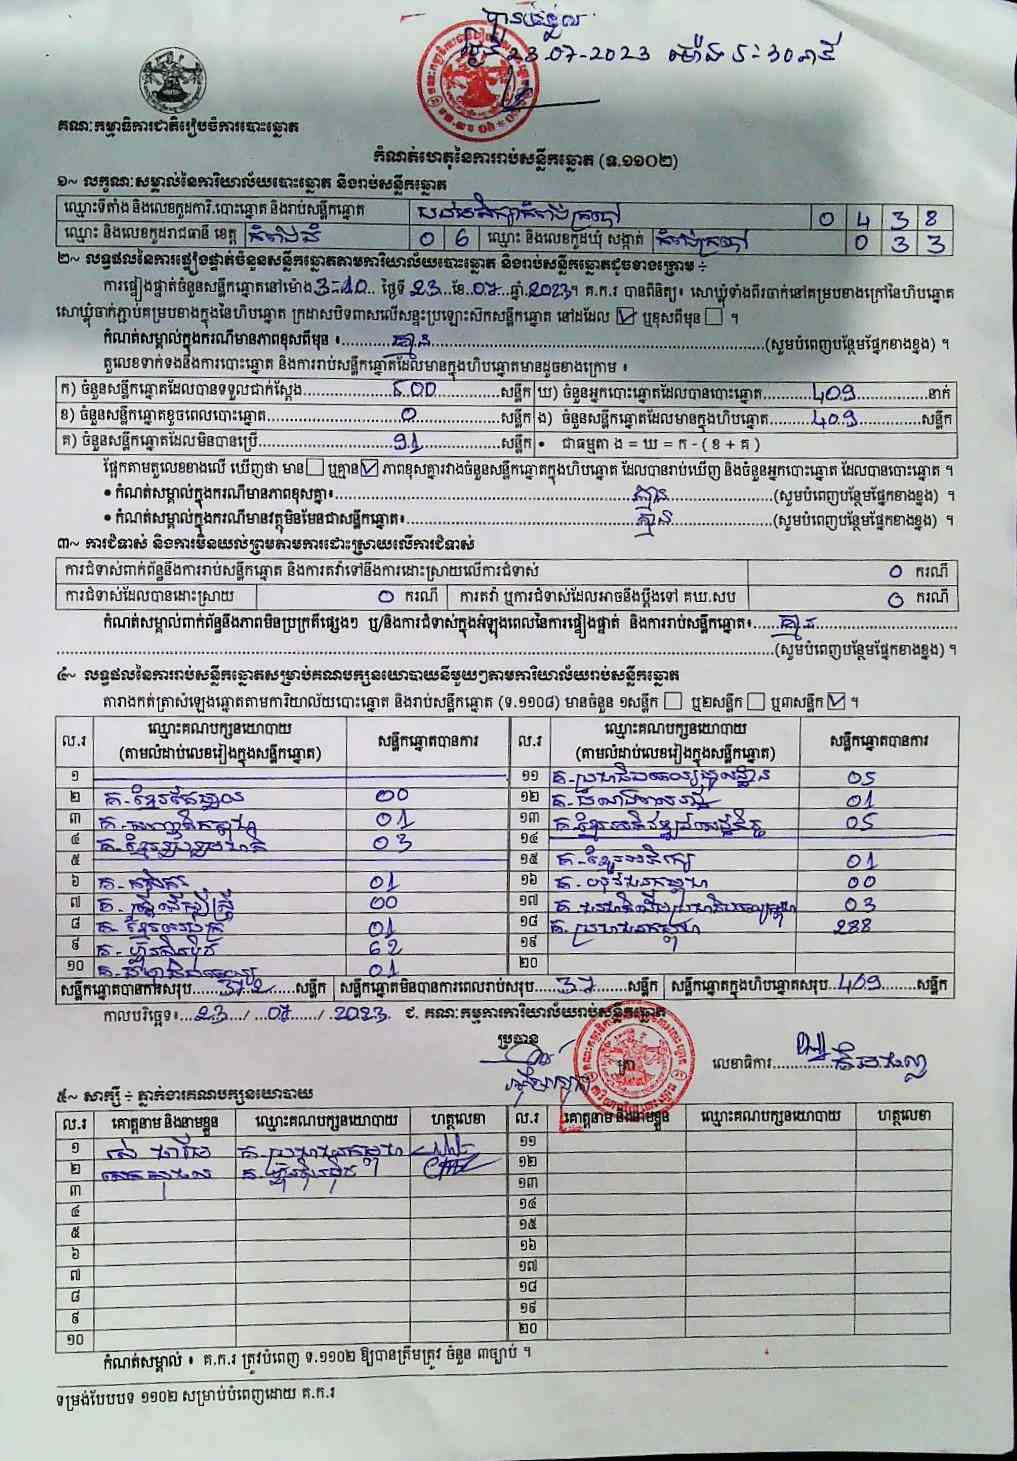 បានទទួល
ថ្ងៃទី 23-07-2023 ម៉ោង 5:30នាទី
គណៈកម្មាធិការជាតិរៀបចំការបោះឆ្នោត
កំណត់ហេតុនៃការរាប់សន្លឹកឆ្នោត (ទ.១១០២)
១~ លក្ខណៈសម្គាល់នៃការិយាល័យបោះឆ្នោត និងរាប់សន្លឹកឆ្នោត
ឈ្មោះទីតាំង និងលេខកូដការិ.បោះឆ្នោត និងរាប់សន្លឹកឆ្នោត 0 4 3 8
ឈ្មោះ និងលេខកូដរាជធានី ខេត្ត កំពង់ធំ 0 6 ឈ្មោះ និងលេខកូដឃុំ សង្កាត់ 0 3 3
២~ លទ្ធផលនៃការផ្ទៀងផ្ទាត់ចំនួនសន្លឹកឆ្នោតតាមការិយាល័យបោះឆ្នោត និងរាប់សន្លឹកឆ្នោតដូចខាងក្រោម ÷
ការផ្ទៀងផ្ទាត់ចំនួនសន្លឹកឆ្នោតនៅម៉ោង 3-10 ថ្ងៃទី 23 ខែ 07 ឆ្នាំ 2023។ គ.ក.រ បានពិនិត្យ៖ សោឃ្លុំទាំងពីរចាក់នៅគម្របខាងក្រៅនៃហិបឆ្នោត
សោឃ្លុំចាក់ភ្ជាប់គម្របខាងក្នុងនៃហិបឆ្នោត ក្រដាសបិទពាសលើសន្ទះប្រឡោះសឹកសន្លឹកឆ្នោត នៅដដែល ☑ ឬខុសពីមុន ☐ ។
កំណត់សម្គាល់ក្នុងករណីមានភាពខុសពីមុន ៖ គ្មាន (សូមបំពេញបន្ថែមផ្នែកខាងខ្នង) ។
តួលេខទាក់ទងនឹងការបោះឆ្នោត និងការរាប់សន្លឹកឆ្នោតដែលមានក្នុងហិបឆ្នោតមានដូចខាងក្រោម ៖
ក) ចំនួនសន្លឹកឆ្នោតដែលបានទទួលជាក់ស្តែង 500 សន្លឹក ឃ) ចំនួនអ្នកបោះឆ្នោតដែលបានបោះឆ្នោត 409 នាក់
ខ) ចំនួនសន្លឹកឆ្នោតខូចពេលបោះឆ្នោត 0 សន្លឹក ង) ចំនួនសន្លឹកឆ្នោតដែលមានក្នុងហិបឆ្នោត 409 សន្លឹក
គ) ចំនួនសន្លឹកឆ្នោតដែលមិនបានប្រើ 91 សន្លឹក • ជាធម្មតា ង = ឃ = ក - ( ខ + គ )
ផ្អែកតាមតួលេខខាងលើ ឃើញថា មាន ☐ ឬគ្មាន ☑ ភាពខុសគ្នារវាងចំនួនសន្លឹកឆ្នោតក្នុងហិបឆ្នោត ដែលបានរាប់ឃើញ និងចំនួនអ្នកបោះឆ្នោត ដែលបានបោះឆ្នោត ។
• កំណត់សម្គាល់ក្នុងករណីមានភាពខុសគ្នា៖ គ្មាន (សូមបំពេញបន្ថែមផ្នែកខាងខ្នង) ។
• កំណត់សម្គាល់ក្នុងករណីមានវត្ថុមិនមែនជាសន្លឹកឆ្នោត៖ គ្មាន (សូមបំពេញបន្ថែមផ្នែកខាងខ្នង) ។
៣~ ការជំទាស់ និងការមិនយល់ព្រមតាមការដោះស្រាយលើការជំទាស់
ការជំទាស់ពាក់ព័ន្ធនឹងការរាប់សន្លឹកឆ្នោត និងការតវ៉ាទៅនឹងការដោះស្រាយលើការជំទាស់ 0 ករណី
ការជំទាស់ដែលបានដោះស្រាយ 0 ករណី ការតវ៉ា ឬការជំទាស់ដែលអាចនឹងប្តឹងទៅ គឃ.សប 0 ករណី
កំណត់សម្គាល់ពាក់ព័ន្ធនឹងភាពមិនប្រក្រតីផ្សេងៗ ឬ/និងការជំទាស់ក្នុងអំឡុងពេលនៃការផ្ទៀងផ្ទាត់ និងការរាប់សន្លឹកឆ្នោត៖ គ្មាន
(សូមបំពេញបន្ថែមផ្នែកខាងខ្នង) ។
៤~ លទ្ធផលនៃការរាប់សន្លឹកឆ្នោតសម្រាប់គណបក្សនយោបាយនីមួយៗតាមការិយាល័យរាប់សន្លឹកឆ្នោត
តារាងកត់ត្រាសំឡេងឆ្នោតតាមការិយាល័យបោះឆ្នោត និងរាប់សន្លឹកឆ្នោត (ទ.១១០៨) មានចំនួន ១សន្លឹក ☐ ឬ២សន្លឹក ☐ ឬ៣សន្លឹក ☑ ។
ល.រ ឈ្មោះគណបក្សនយោបាយ (តាមលំដាប់លេខរៀងក្នុងសន្លឹកឆ្នោត) សន្លឹកឆ្នោតបានការ ល.រ ឈ្មោះគណបក្សនយោបាយ (តាមលំដាប់លេខរៀងក្នុងសន្លឹកឆ្នោត) សន្លឹកឆ្នោតបានការ
១ ១១ 05
២ 00 ១២ 01
៣ 01 ១៣ 05
៤ 03 ១៤
៥ ១៥ 01
៦ 01 ១៦ 00
៧ 00 ១៧ 03
៨ 01 ១៨ គ.ប្រជាជនកម្ពុជា 288
៩ 62 ១៩
១០ 01 ២០
សន្លឹកឆ្នោតបានការសរុប 372 សន្លឹក សន្លឹកឆ្នោតមិនបានការពេលរាប់សរុប 37 សន្លឹក សន្លឹកឆ្នោតក្នុងហិបឆ្នោតសរុប 409 សន្លឹក
កាលបរិច្ឆេទ៖ 23 / 07 / 2023 ជ. គណៈកម្មការការិយាល័យរាប់សន្លឹកឆ្នោត
ប្រធាន
ត្រា
លេខាធិការ
៥~ សាក្សី ÷ ភ្នាក់ងារគណបក្សនយោបាយ
ល.រ គោត្តនាម និងនាមខ្លួន ឈ្មោះគណបក្សនយោបាយ ហត្ថលេខា ល.រ គោត្តនាម និងនាមខ្លួន ឈ្មោះគណបក្សនយោបាយ ហត្ថលេខា
១ គ.ប្រជាជនកម្ពុជា ១១
២ ១២
៣ ១៣
៤ ១៤
៥ ១៥
៦ ១៦
៧ ១៧
៨ ១៨
៩ ១៩
១០ ២០
កំណត់សម្គាល់ ៖ គ.ក.រ ត្រូវបំពេញ ទ.១១០២ ឱ្យបានត្រឹមត្រូវ ចំនួន ៣ច្បាប់ ។
ទម្រង់បែបបទ ១១០២ សម្រាប់បំពេញដោយ គ.ក.រ